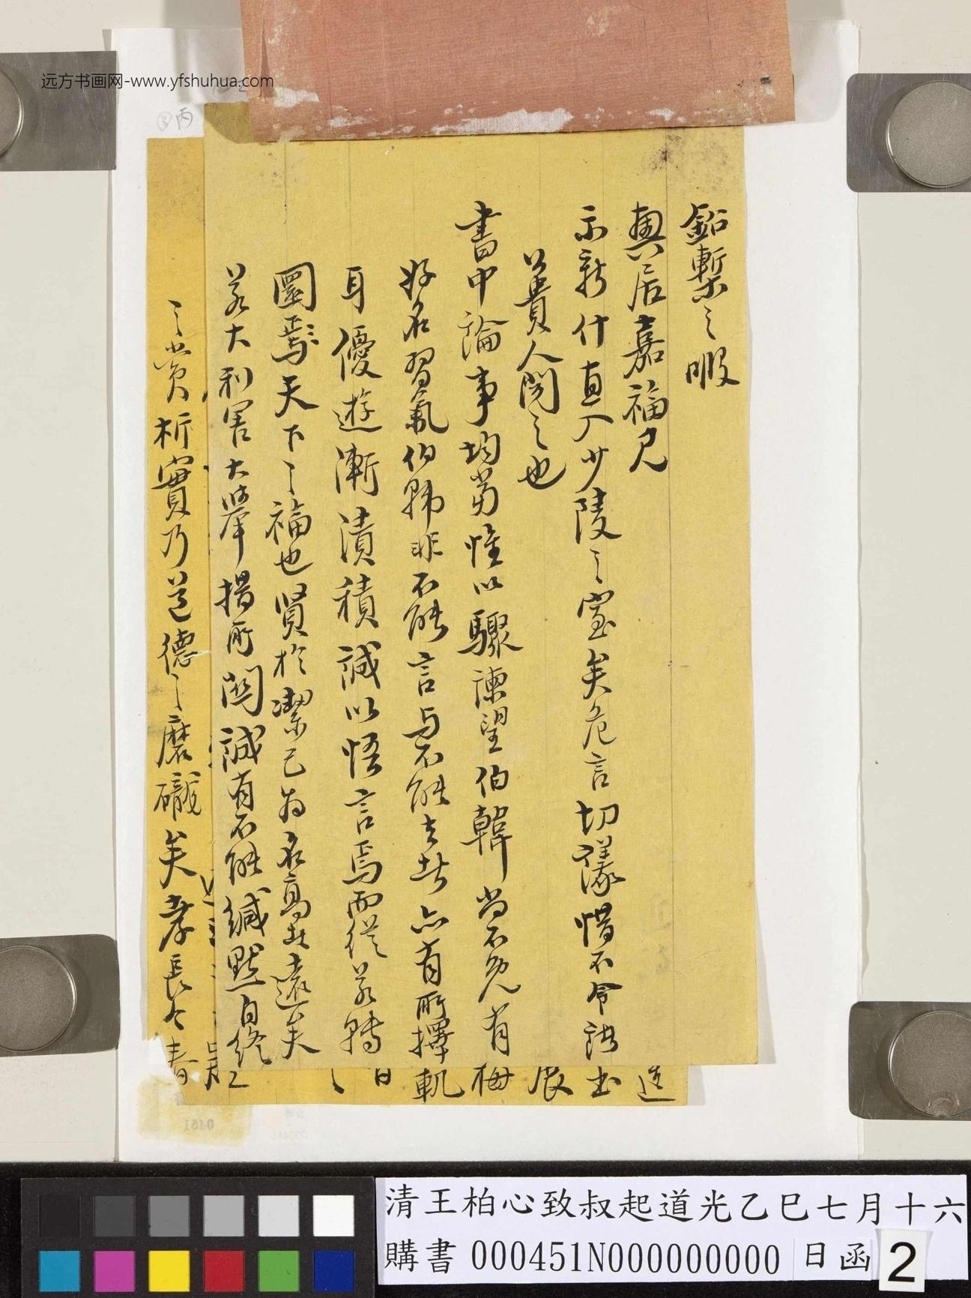 远方书画网-www.yfshuhua.com
丙
鉛槧之暇
輿居嘉福光
示新什直入少陵之室矣危言切議惜不令諸
公貴人聞之也
書中論事均當惟以驟諫望伯韓尚不免有
好名習氣伯韓非不能言与不能去者亦有所擇
耳優遊漸漬積誠以悟言焉而從若轉
圜焉天下之福也賢於潔己為名高者遠矣
若大利害大舉措所關誠有不能緘默自終
之賞析實乃道德之磨礲矣孝長今春
清王柏心致叔起道光乙巳七月十六
購書 000451N000000000 日函 2